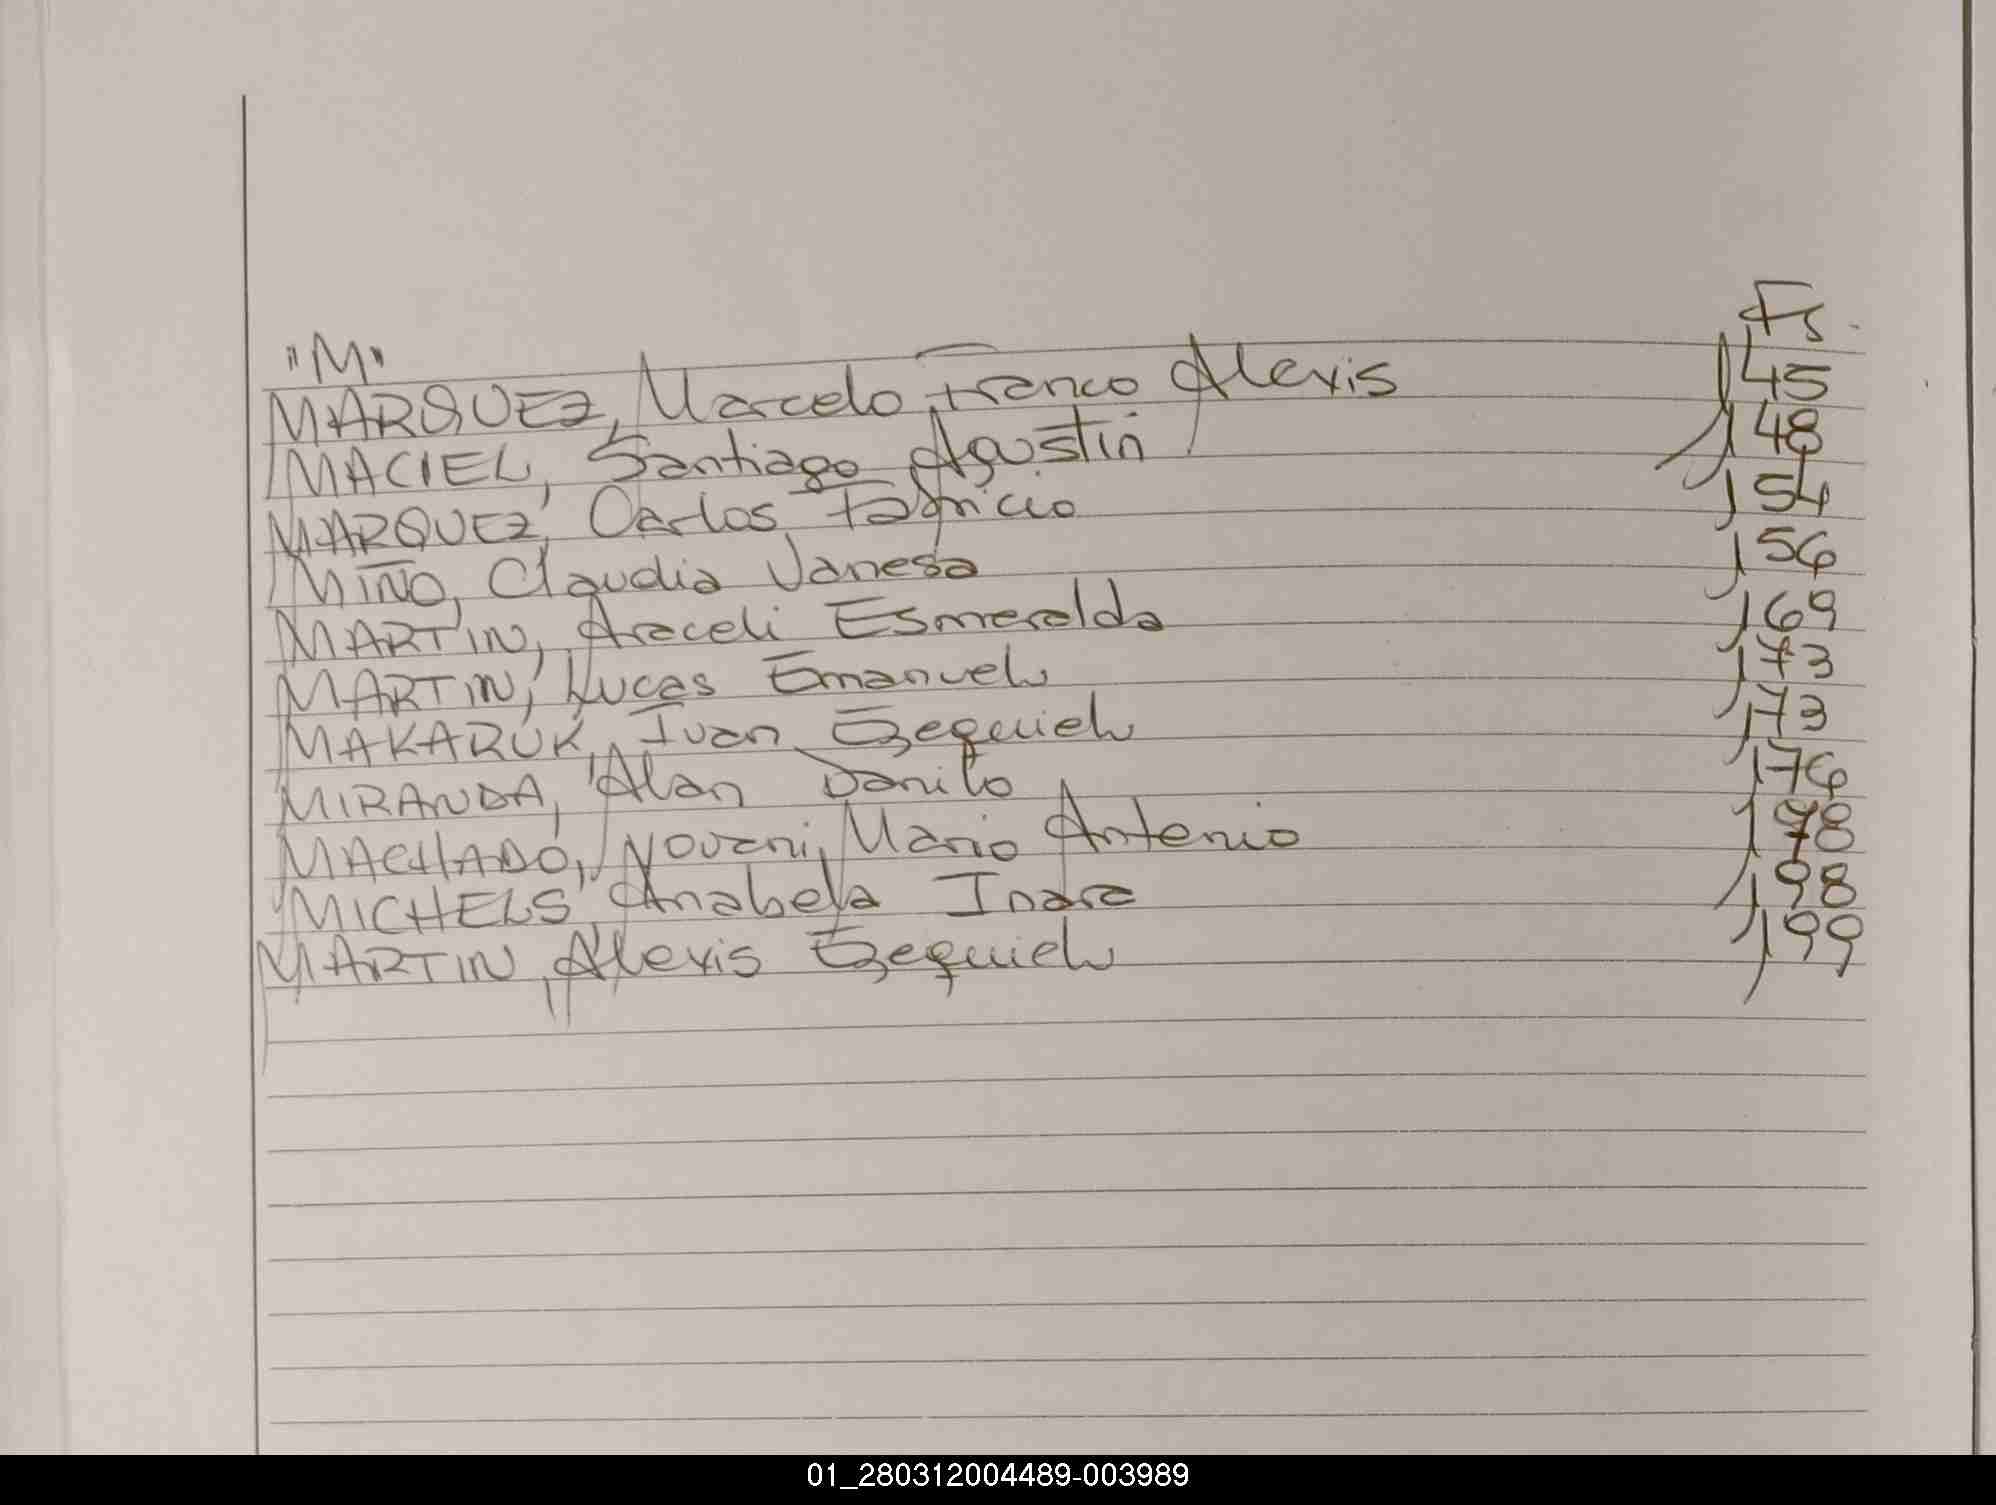 "M" Fs.
MARQUEZ, Marcelo Franco Alexis 145
MACIEL, Santiago Agustin 148
MARQUEZ, Carlos Fabricio 154
MIÑO, Claudia Vanesa 156
MARTIN, Araceli Esmeralda 169
MARTIN, Lucas Emanuel 173
MAKARUK, Ivan Ezequiel 173
MIRANDA, Alan Danilo 176
MACHADO, Novani, Mario Antonio 198
MICHELS, Anabela Inara 198
MARTIN, Alexis Ezequiel 199
01_280312004489-003989